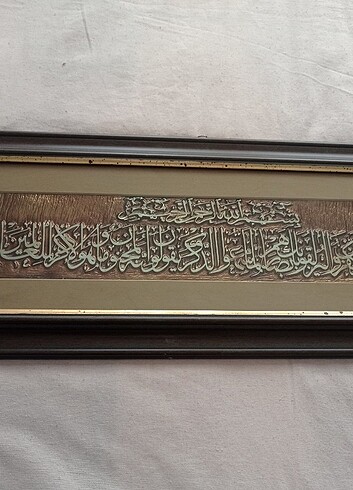 بسم الله الرحمن الرحيم
لما سمعوا الذكر ويقولون إنه لمجنون وما هو إلا ذكر للعالمين